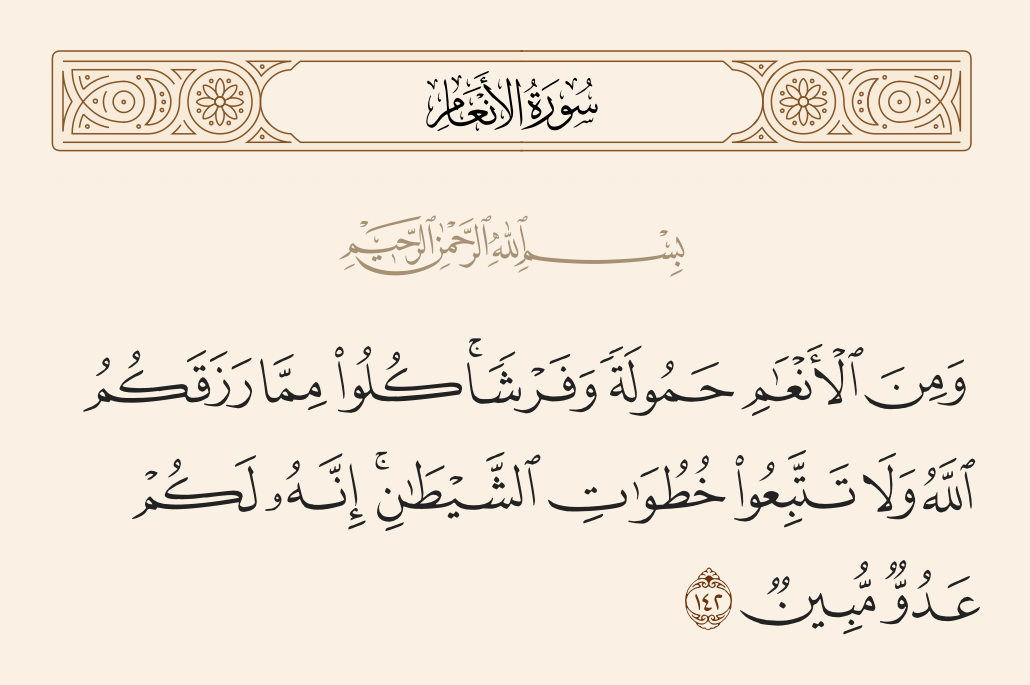 سُورَةُ الأَنْعَامِ
بِسْمِ ٱللَّهِ ٱلرَّحْمَٰنِ ٱلرَّحِيمِ
وَمِنَ ٱلْأَنْعَٰمِ حَمُولَةً وَفَرْشًا ۚ كُلُوا۟ مِمَّا رَزَقَكُمُ
ٱللَّهُ وَلَا تَتَّبِعُوا۟ خُطُوَٰتِ ٱلشَّيْطَٰنِ ۚ إِنَّهُۥ لَكُمْ
عَدُوٌّ مُّبِينٌ ١٤٢